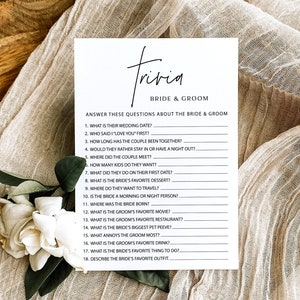 Trivia
BRIDE & GROOM
ANSWER THESE QUESTIONS ABOUT THE BRIDE & GROOM
1. WHAT IS THEIR WEDDING DATE?
2. WHO SAID I "LOVE YOU" FIRST?
3. HOW LONG HAS THE COUPLE BEEN TOGETHER?
4. WOULD THEY RATHER STAY IN OR HAVE A NIGHT OUT?
5. WHERE DID THE COUPLE MEET?
6. HOW MANY KIDS DO THEY WANT?
7. WHAT DID THEY DO ON THEIR FIRST DATE?
8. WHAT IS THE BRIDE'S FAVORITE DESSERT?
9. WHERE DO THEY WANT TO TRAVEL?
10. IS THE BRIDE A MORNING OR NIGHT PERSON?
11. WHERE WAS THE BRIDE BORN?
12. WHAT IS THE GROOM'S FAVORITE MOVIE?
13. WHAT IS THE GROOM'S FAVORITE RESTAURANT?
14. WHAT IS THE BRIDE'S BIGGEST PET PEEVE?
15. WHAT ANNOYS THE GROOM MOST?
16. WHAT IS THE GROOM'S FAVORITE DRINK?
17. WHAT IS THE BRIDE'S FAVORITE THING TO DO?
18. DESCRIBE THE BRIDE'S FAVORITE OUTFIT.